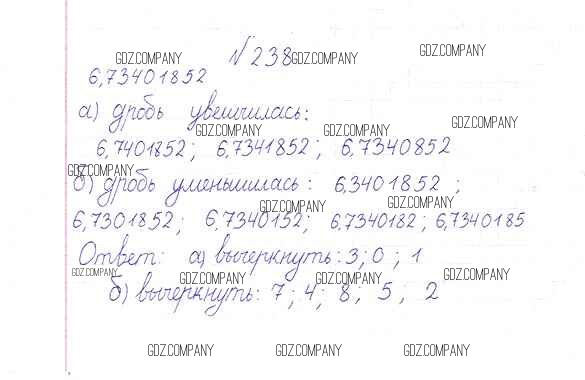 GDZ.COMPANY № 238 GDZ.COMPANY GDZ.COMPANY
6,73401852
а) дробь увеличилась:
GDZ.COMPANY GDZ.COMPANY GDZ.COMPANY
6,7401852; 6,7341852; 6,7340852
GDZ.COMPANY
б) дробь уменьшилась: 6,3401852;
GDZ.COMPANY GDZ.COMPANY
6,7301852; 6,7340152; 6,7340182; 6,7340185
Ответ: а) вычеркнуть: 3; 0; 1
GDZ.COMPANY GDZ.COMPANY GDZ.COMPANY GDZ.COMPANY
б) вычеркнуть: 7; 4; 8; 5; 2
GDZ.COMPANY GDZ.COMPANY GDZ.COMPANY